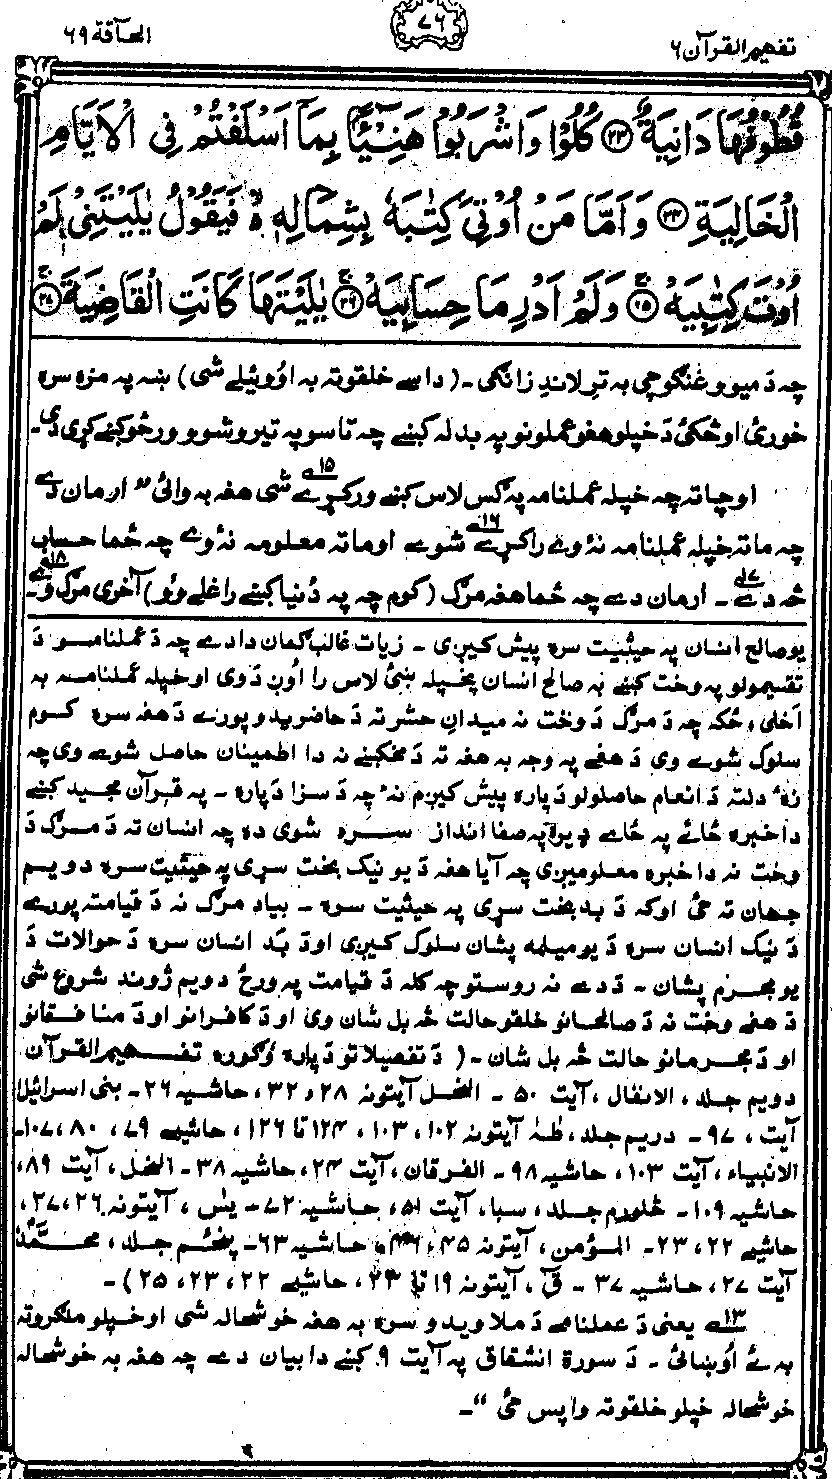 تفهيم القرآن ٦
٧٦
الحآقة ٦٩
قُطُوْفُهَا دَانِيَةٌ ﴿٢٣﴾ كُلُوْا وَاشْرَبُوْا هَنِيْٓـًٔا بِمَآ اَسْلَفْتُمْ فِى الْاَيَّامِ
الْخَالِيَةِ ﴿٢٤﴾ وَاَمَّا مَنْ اُوْتِىَ كِتٰبَهٗ بِشِمَالِهٖ ۙ فَيَقُوْلُ يٰلَيْتَنِىْ لَمْ
اُوْتَ كِتٰبِيَهْ ﴿٢٥﴾ وَلَمْ اَدْرِ مَا حِسَابِيَهْ ﴿٢٦﴾ يٰلَيْتَهَا كَانَتِ الْقَاضِيَةَ ﴿٢٧﴾
چه دَ ميوو غنګوچي به تړلاندِ زانګی ۔ ( داسے خلقوته به اوُوئيلے شی ) ښه په مزه سره
خورئ اوڅکئ دَ خپلو هغو عملونو په بدله کښے چه تاسو په تير وشوو ورځو کښے کړی دی۔
اوچاته چه خپله عملنامه په ګس لاس کښے ورکړے ١٥ شی هغه به وائی " ارمان دے
چه ماته خپله عملنامه نهٔ وے راکړے ١٦ شوے اوماته معلومه نهٔ وے چه ځما حساب
څه دے ١٧ ۔ ارمان دے چه ځما هغه مرګ ( کوم چه په دُنيا کښے راغلے وؤ ) آخری مرګ وے ١٨ ۔
يو صالح انسان په حيثيت سره پيش کيږی ۔ زيات غالب ګمان دا دے چه دَ عملنامو دَ
تقسيمولو په وخت کښے به صالح انسان پخپله ښئ لاس را اُوږدوی او خپله عملنامه به
اَخلی ، ځکه چه دَ مرګ دَ وخت نه ميدانِ حشر ته دَ حاضريدو پورے دَ هغه سره کوم
سلوک شوے وی دَ هغے په وجه به هغه ته دَ مخکښے نه دا اطمينان حاصل شوے وی چه
زهٔ دلته دَ انعام حاصلولو دَپاره پيش کيږم نه چه دَ سزا دَپاره ۔ په قرآن مجيد کښے
دا خبره ځائے په ځاے ډيره په صفا انداز سره شوی ده چه انسان ته دَ مرګ دَ
وخت نه دا خبره معلوميږی چه آيا هغه دَ يو نيک بخت سړی په حيثيت سره دويم
جهان ته ځی اوکه دَ بدبخت سړی په حيثيت سره ۔ بياد مرګ نه دَ قيامته پورے
دَ نيک انسان سره دَ يو ميلمه پشان سلوک کيږی اودَ بَد انسان سره دَ حوالات دَ
يو مجرم پشان ۔ دَ دے نه روستو چه کله دَ قيامت په ورځ دويم ژوند شروع شی
دَ هغے وخت نه دَ صالحانو خلقو حالت څه بل شان وی او دَ کافرانو او دَ منافقانو
او دَ مجرمانو حالت څه بل شان ۔ ( دَ تفصيلاتو دَپاره وګوره تفهيم القرآن
دويم جلد ، الانفال ، آيت ٥٠ ۔ النحل آيتونه ٢٨ ، ٣٢ ، حاشيه ٢٦ ۔ بنی اسرائيل
آيت ، ٩٧ ۔ دريم جلد ، طٰهٰ آيتونه ١٠٢ ، ١٠٣ ، ١٢٤ تا ١٢٦ ، حاشيے ٧٩ ، ٨٠ ، ١٠٧۔
الانبياء ، آيت ١٠٣ ، حاشيه ٩٨ ۔ الفرقان ، آيت ٢٤ ، حاشيه ٣٨ ۔ النحل ، آيت ٨٩ ،
حاشيه ١٠٩ ۔ څلورم جلد ، سبا ، آيت ٥١ ، حاشيه ٧٢ ۔ يٰس ، آيتونه ٢٦ ، ٢٧ ،
حاشيے ٢٢ ، ٢٣ ۔ المؤمن ، آيتونه ٤٥ ، ٤٦ ، حاشيه ٦٣ ۔ پنځم جلد ، محمّد
آيت ٢٧ ، حاشيه ٣٧ ۔ قٓ ، آيتونه ١٩ تا ٢٣ ، حاشيے ٢٢ ، ٢٣ ، ٢٥ ) ۔
١٣ يعنی دَ عملنامے دَ ملاويدو سره به هغه خوشحاله شی او خپلو ملګروته
به ئے اوُښائی ۔ دَ سورة انشقاق په آيت ٩ کښے دا بيان دے چه هغه به خوشحاله
خوشحاله خپلو خلقوته واپس ځی " ۔